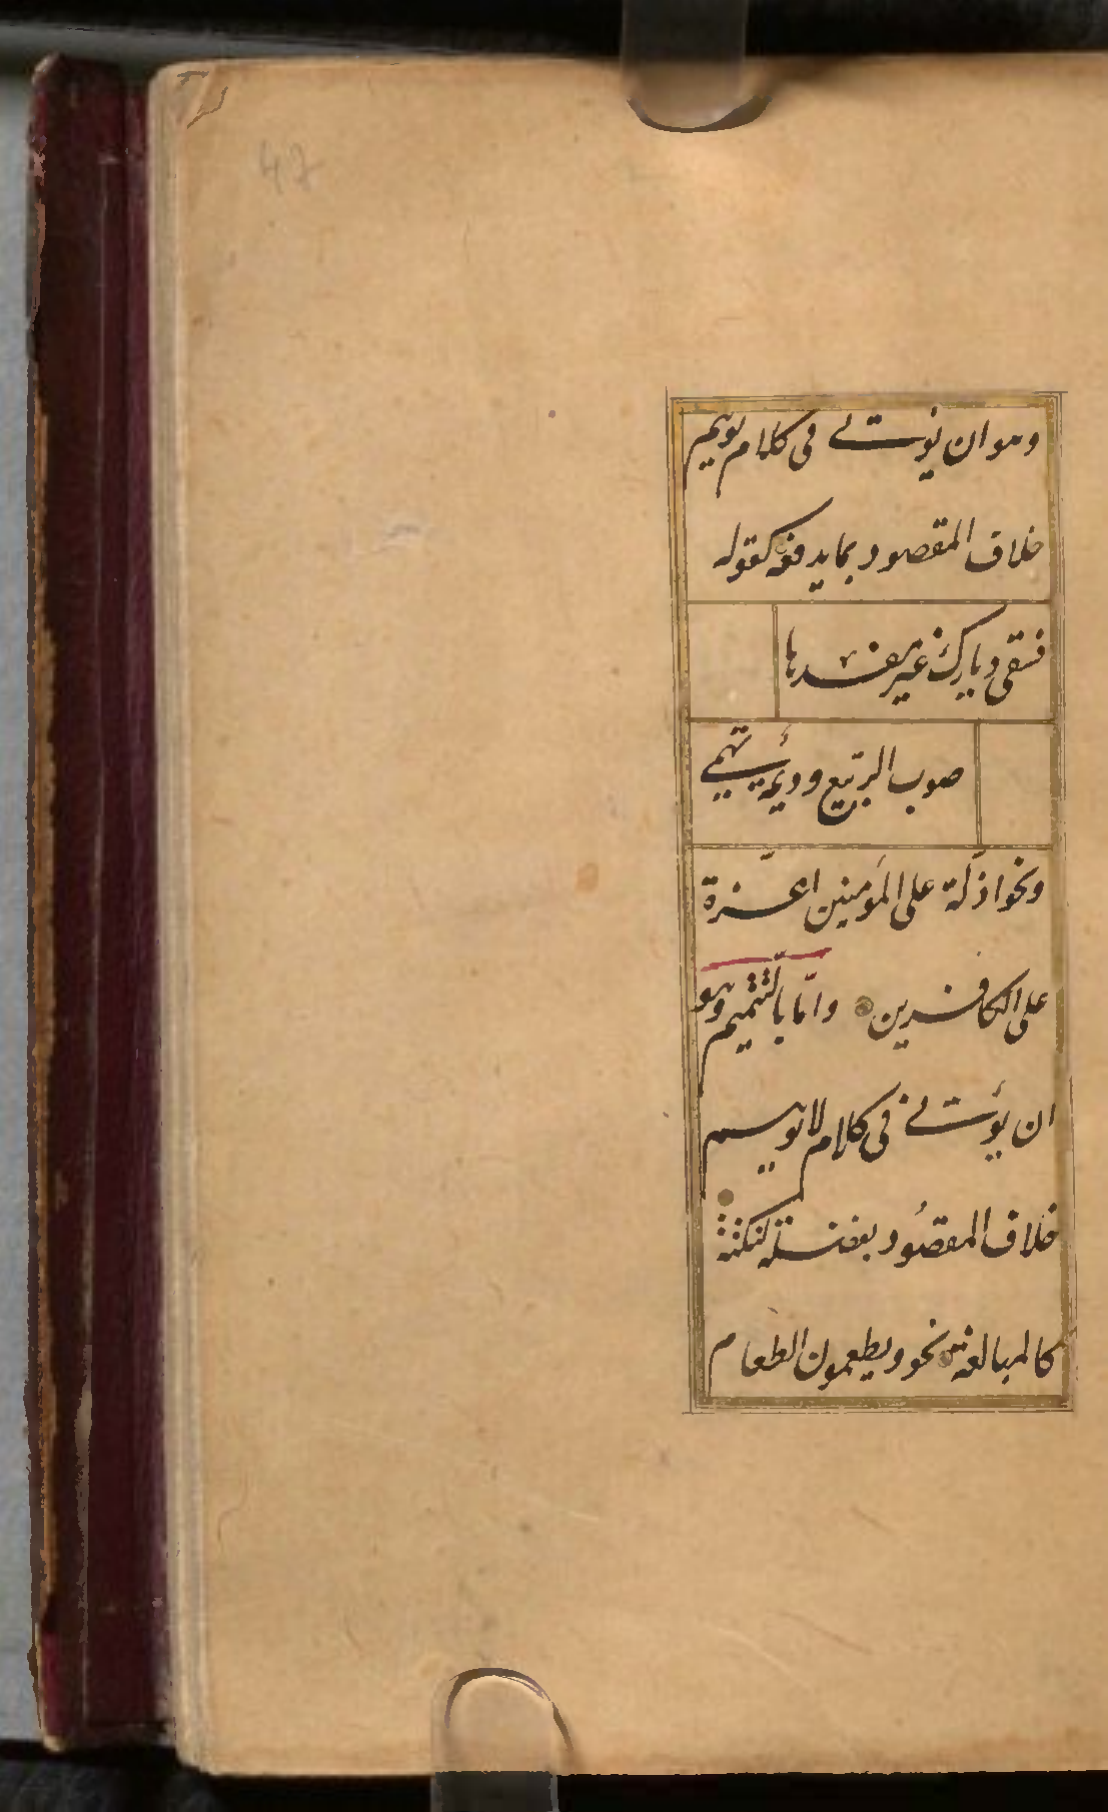 47
وهو ان يؤتى في كلام يوهم
خلاف المقصود بما يدفعه كقوله
فسقى ديارك غير مفسدها
صوب الربيع وديمة تهمي
ونحو اذلة على المؤمنين اعزة
على الكافرين واما بالتتميم وهو
ان يؤتى في كلام لا يوهم
خلاف المقصود بفضلة لنكتة
كالمبالغة نحو ويطعمون الطعام